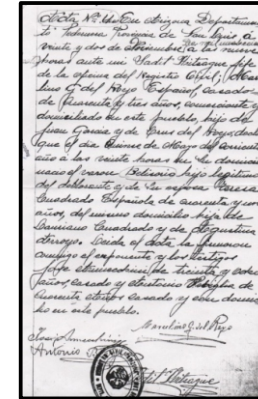 Acta Nº
En Arizona Departamento
Provincia de San Luis á
veinte y dos de Diciembre
á las nueve
horas ante mi Sadit Pitraque Jefe
de la oficina del Registro Civil;
lino G. del Hoyo Español, casado
de cuarenta y tres años, comerciante y
domiciliado en este pueblo, hijo de
Juan Garcia y de Cruz del Hoyo, declaró
que el dia quince de Mayo del corriente
año á las veinte horas en su domicilio
nació el varon Belisario hijo legitimo
del declarante y de su esposa Teresa
Cuadrado Española de cuarenta y un
años, del mismo domicilio hija de
Damiano Cuadrado y de Agustina
Arroyo. Leida el acta la firmaron
conmigo el exponente y los testigos
Jorge
de treinta y ocho
años, casado y Antonio
de
cuarenta
casado y con domici
lio en este pueblo.
Marcelino G. del Hoyo
Antonio
Sadit Pitraque